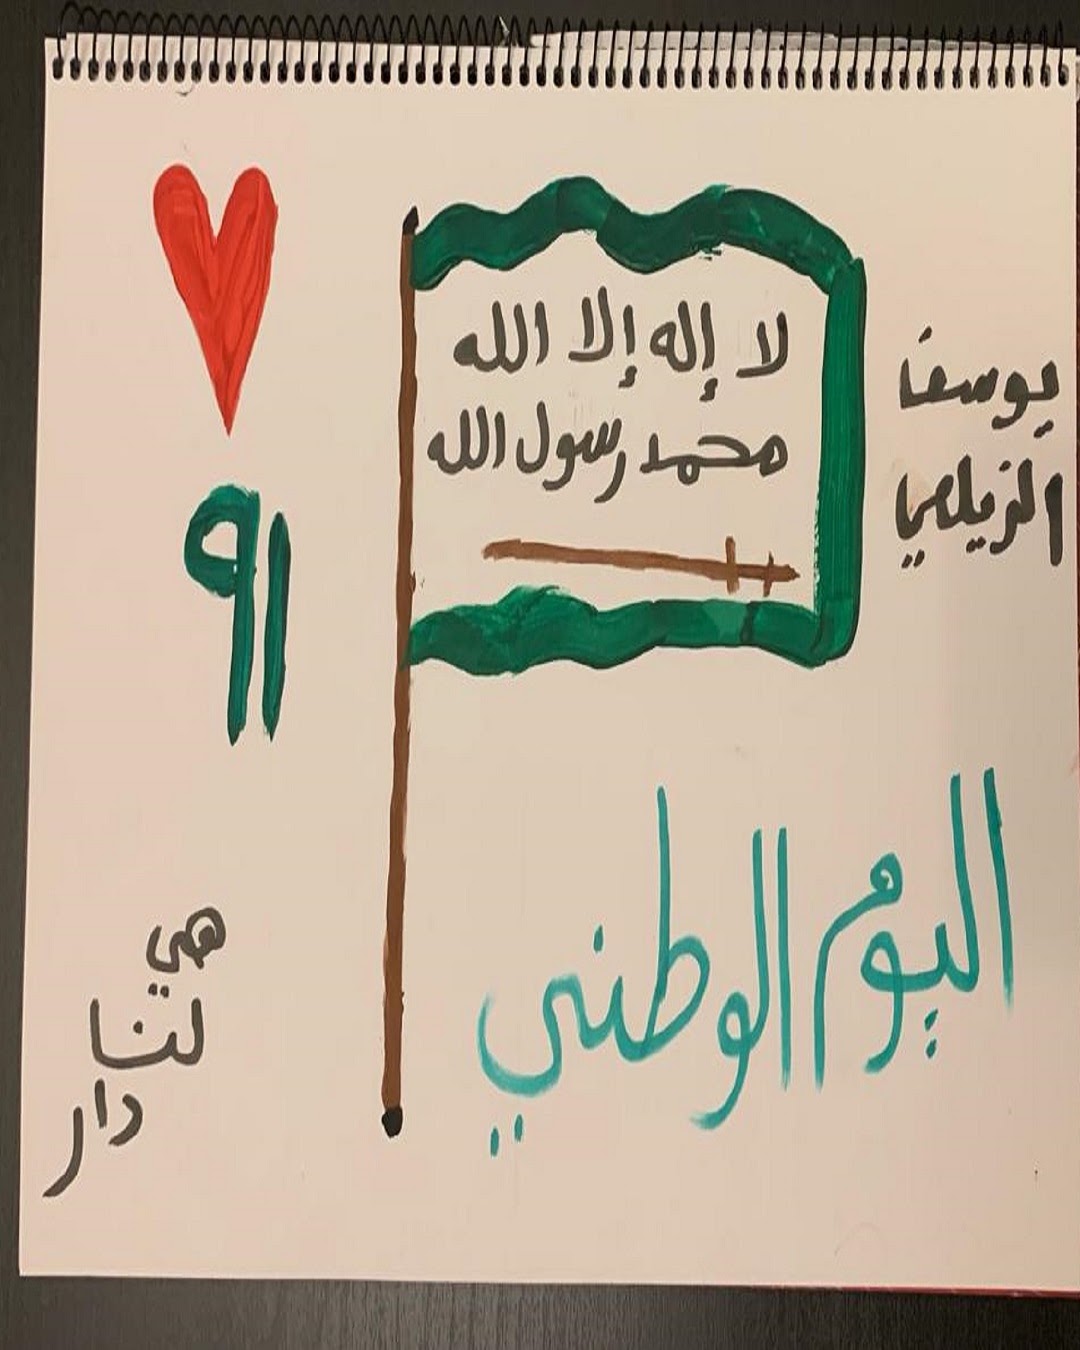 لا إله إلا الله
محمد رسول الله
يوسف
الزيلعي
٩١
اليوم الوطني
هي
لنا
دار